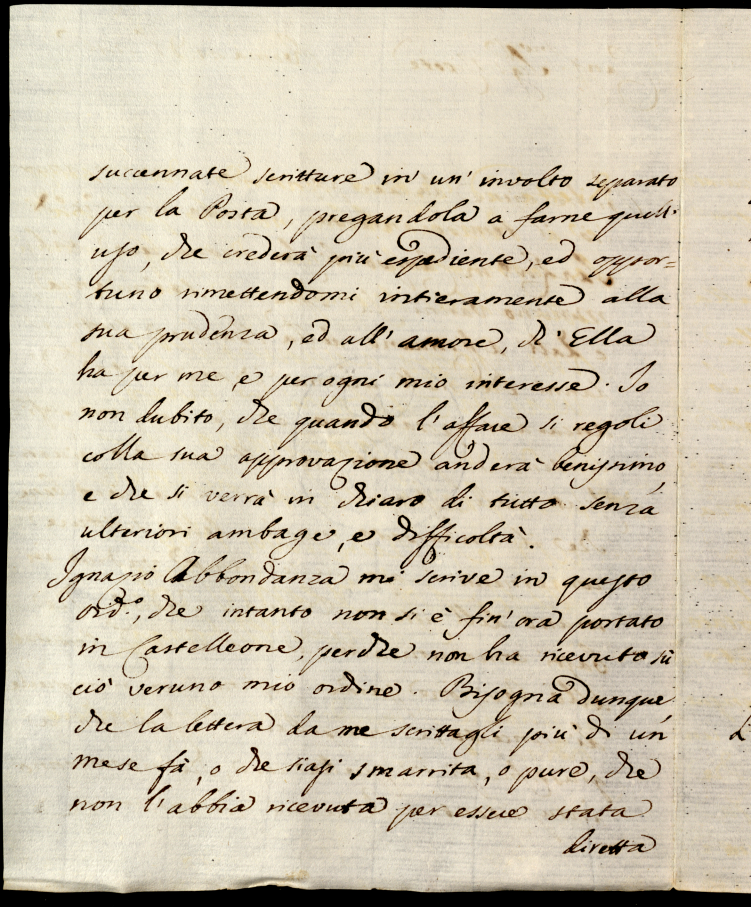 succennate scritture in un' involto separato
per la Posta, pregandola a farne quell'
uso, che crederà più espediente, ed oppor=
tuno rimettendomi intieramente alla
sua prudenza, ed all' amore, ch' Ella
ha per me, e per ogni mio interesse. Io
non dubito, che quando l'affare si regoli
colla sua approvazione anderà benissimo,
e che si verrà in chiaro di tutto senza
ulteriori ambage, e difficoltà.
Ignazio Abbondanza mi scrive in questo
ord.º, che intanto non si è fin' ora portato
in Castelleone, perche non ha ricevuto sù
ciò veruno mio ordine. Bisogna dunque
che la lettera da me scrittagli più di un
mese fà, o che siasi smarrita, o pure, che
non l'abbia ricevuta per essere stata
diretta